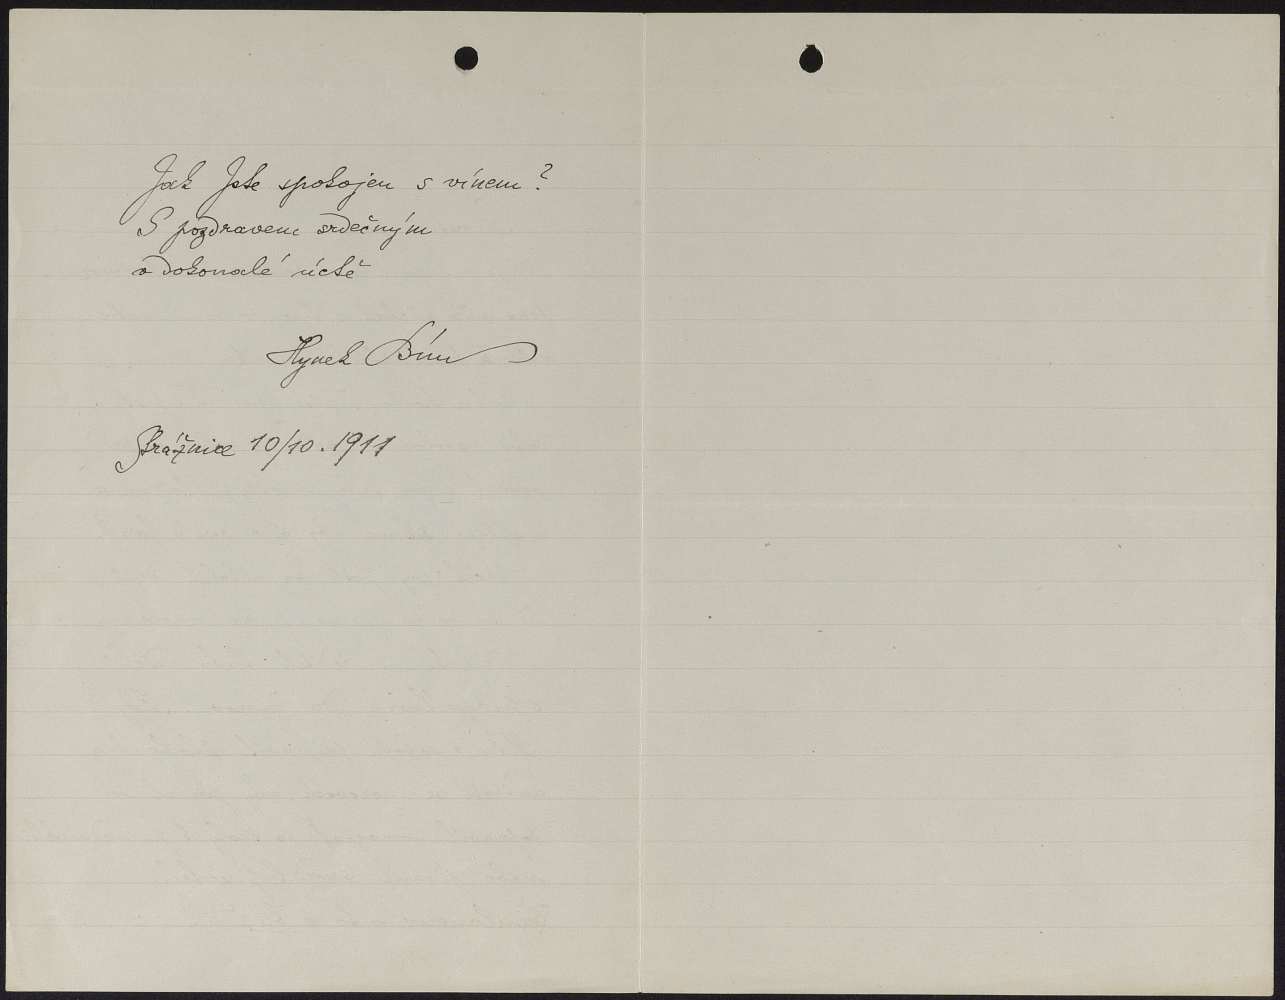 Jak Jste spokojen s vínem?
S pozdravem srdečným
v dokonalé úctě
Hynek Bím
Strážnice 10/10. 1911